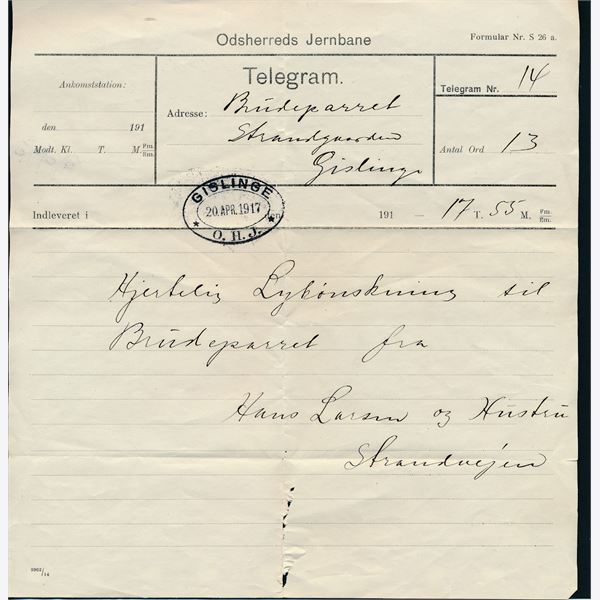 Odsherreds Jernbane
Formular Nr. S 26 a.
Ankomststation:
den 191
Modt. Kl. T. M Fm. Em.
Telegram.
Adresse: Brudeparret
Strandgaarden
Gislinge
Telegram Nr. 14
Antal Ord 13
GISLINGE
20. APR. 1917
O. H. J.
Indleveret i den 191 — 17 T. 55 M. Fm. Em.
Hjertelig Lykønskning til
Brudeparret fra
Hans Larsen og Hustru
Strandvejen